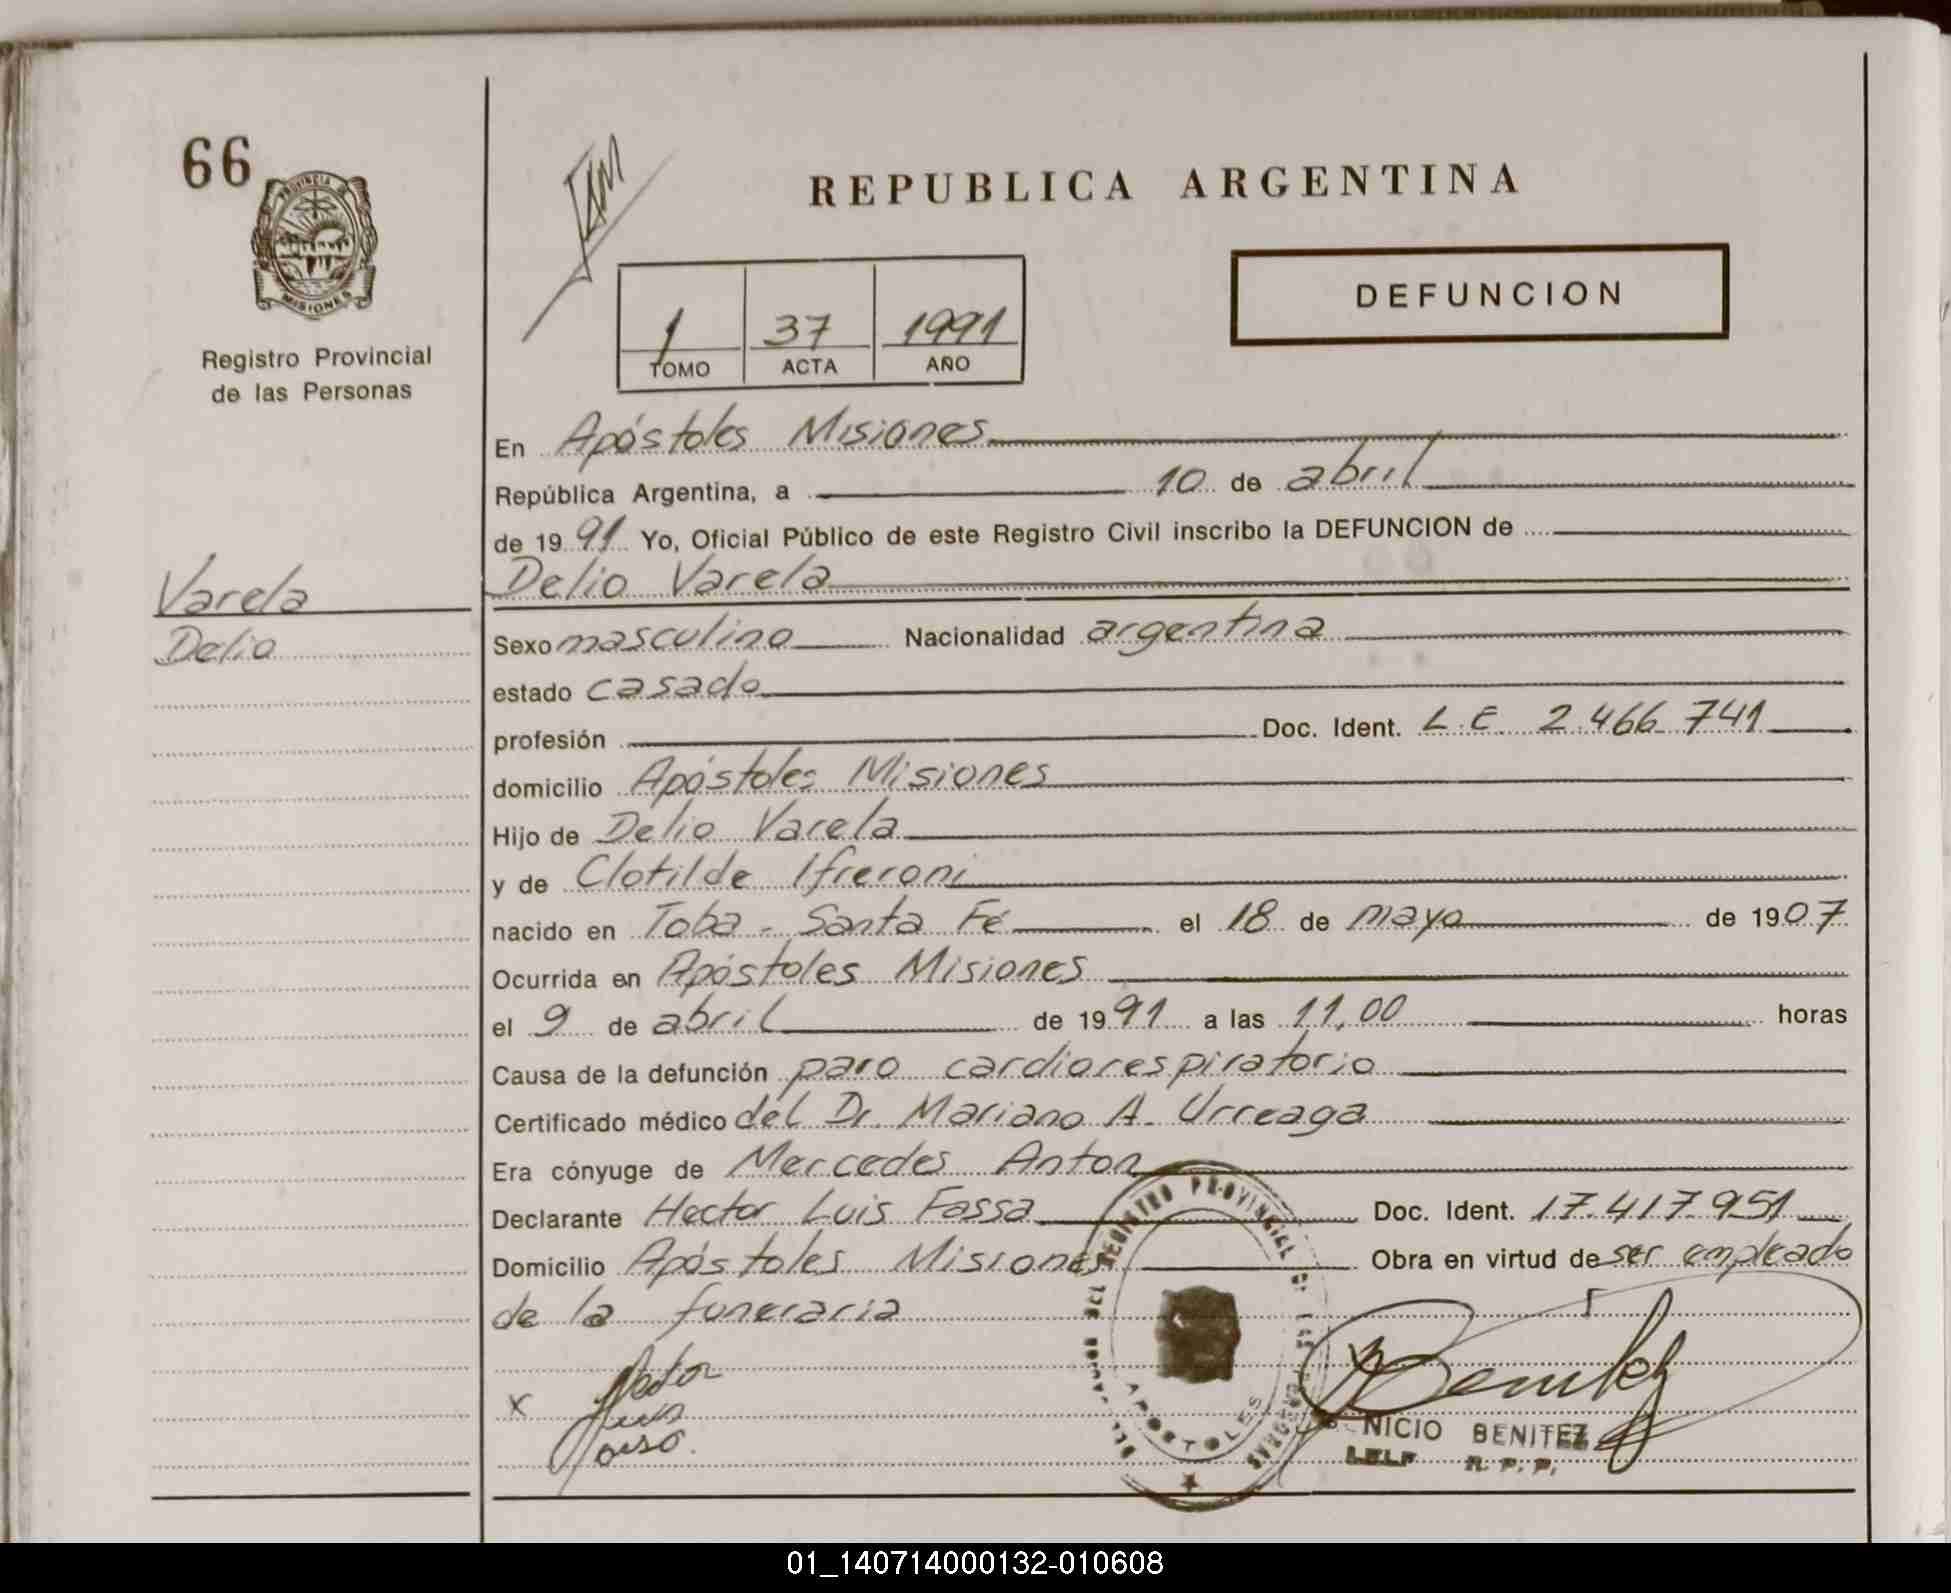 66
PROVINCIA DE
MISIONES
Registro Provincial
de las Personas
REPUBLICA ARGENTINA
DEFUNCION
1 37 1991
TOMO ACTA AÑO
En Apóstoles Misiones
República Argentina, a 10 de abril
de 1991 Yo, Oficial Público de este Registro Civil inscribo la DEFUNCION de
Delio Varela
Varela
Delio
Sexo masculino Nacionalidad argentina
estado casado
profesión Doc. Ident. L.E. 2.466.741
domicilio Apóstoles Misiones
Hijo de Delio Varela
y de Clotilde Ifreroni
nacido en Toba - Santa Fé el 18 de mayo de 1907
Ocurrida en Apóstoles Misiones
el 9 de abril de 1991 a las 11,00 horas
Causa de la defunción paro cardiorespiratorio
Certificado médico del Dr. Mariano A. Urreaga
Era cónyuge de Mercedes Anton
Declarante Hector Luis Fassa Doc. Ident. 17.417.951
Domicilio Apóstoles Misiones Obra en virtud de ser empleado
de la funeraria
REGISTRO PROVINCIAL DE LAS PERSONAS
APOSTOLES
x Hector
Luis
Benitez
NICIO BENITEZ
R. P. P.
01_140714000132-010608